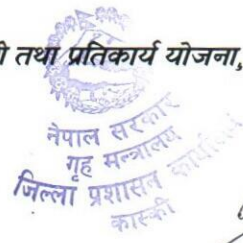 ी तथा प्रतिकार्य योजना,
नेपाल सरकार
गृह मन्त्रालय
जिल्ला प्रशासन कार्यालय
कास्की